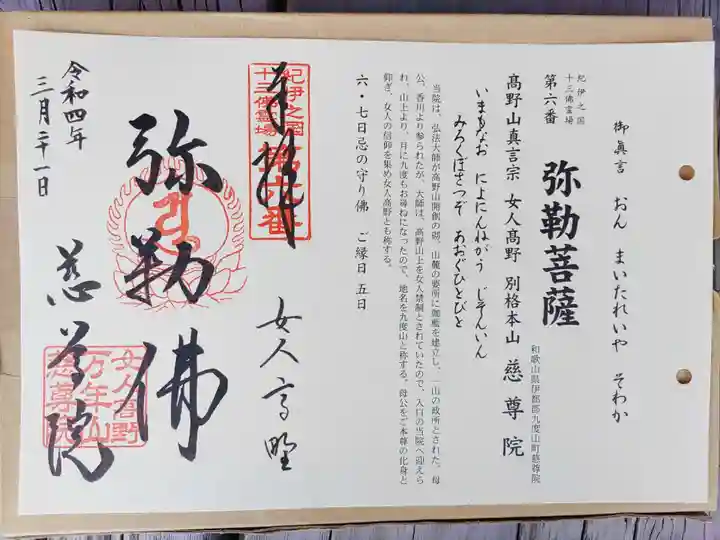 御眞言 おん まいたれいや そわか
紀伊之国
十三佛霊場
第六番 弥勒菩薩
和歌山県伊都郡九度山町慈尊院
高野山真言宗 女人高野 別格本山 慈尊院
いまもなお によにんねがう じそんいん
みろくぼさつぞ あおぐひとびと
当院は、弘法大師が高野山開創の砌、山麓の要所に伽藍を建立し、一山の政所とされた。母
公、香川より参られたが、大師は、高野山上を女人禁制とされていたので、入口の当院へ迎えら
れ、山上より、月に九度もお尋ねになったので、地名を九度山と称する。母公をご本尊の化身と
仰ぎ、女人の信仰を集め女人高野とも称する。
六・七日忌の守り佛 ご縁日 五日
奉拝
紀伊之国
十三佛霊場
第六番
女人高野
弥勒佛
慈尊院
女人高野
万年山
慈尊院
令和四年
三月二十一日